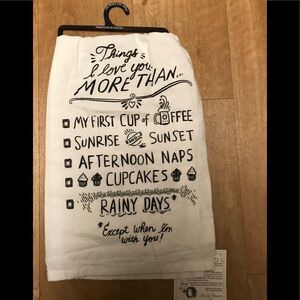 Things
I love you
MORE THAN...
MY FIRST CUP of COFFEE
SUNRISE SUNSET
AFTERNOON NAPS
CUPCAKES
RAINY DAYS*
*Except when I'm
with you!